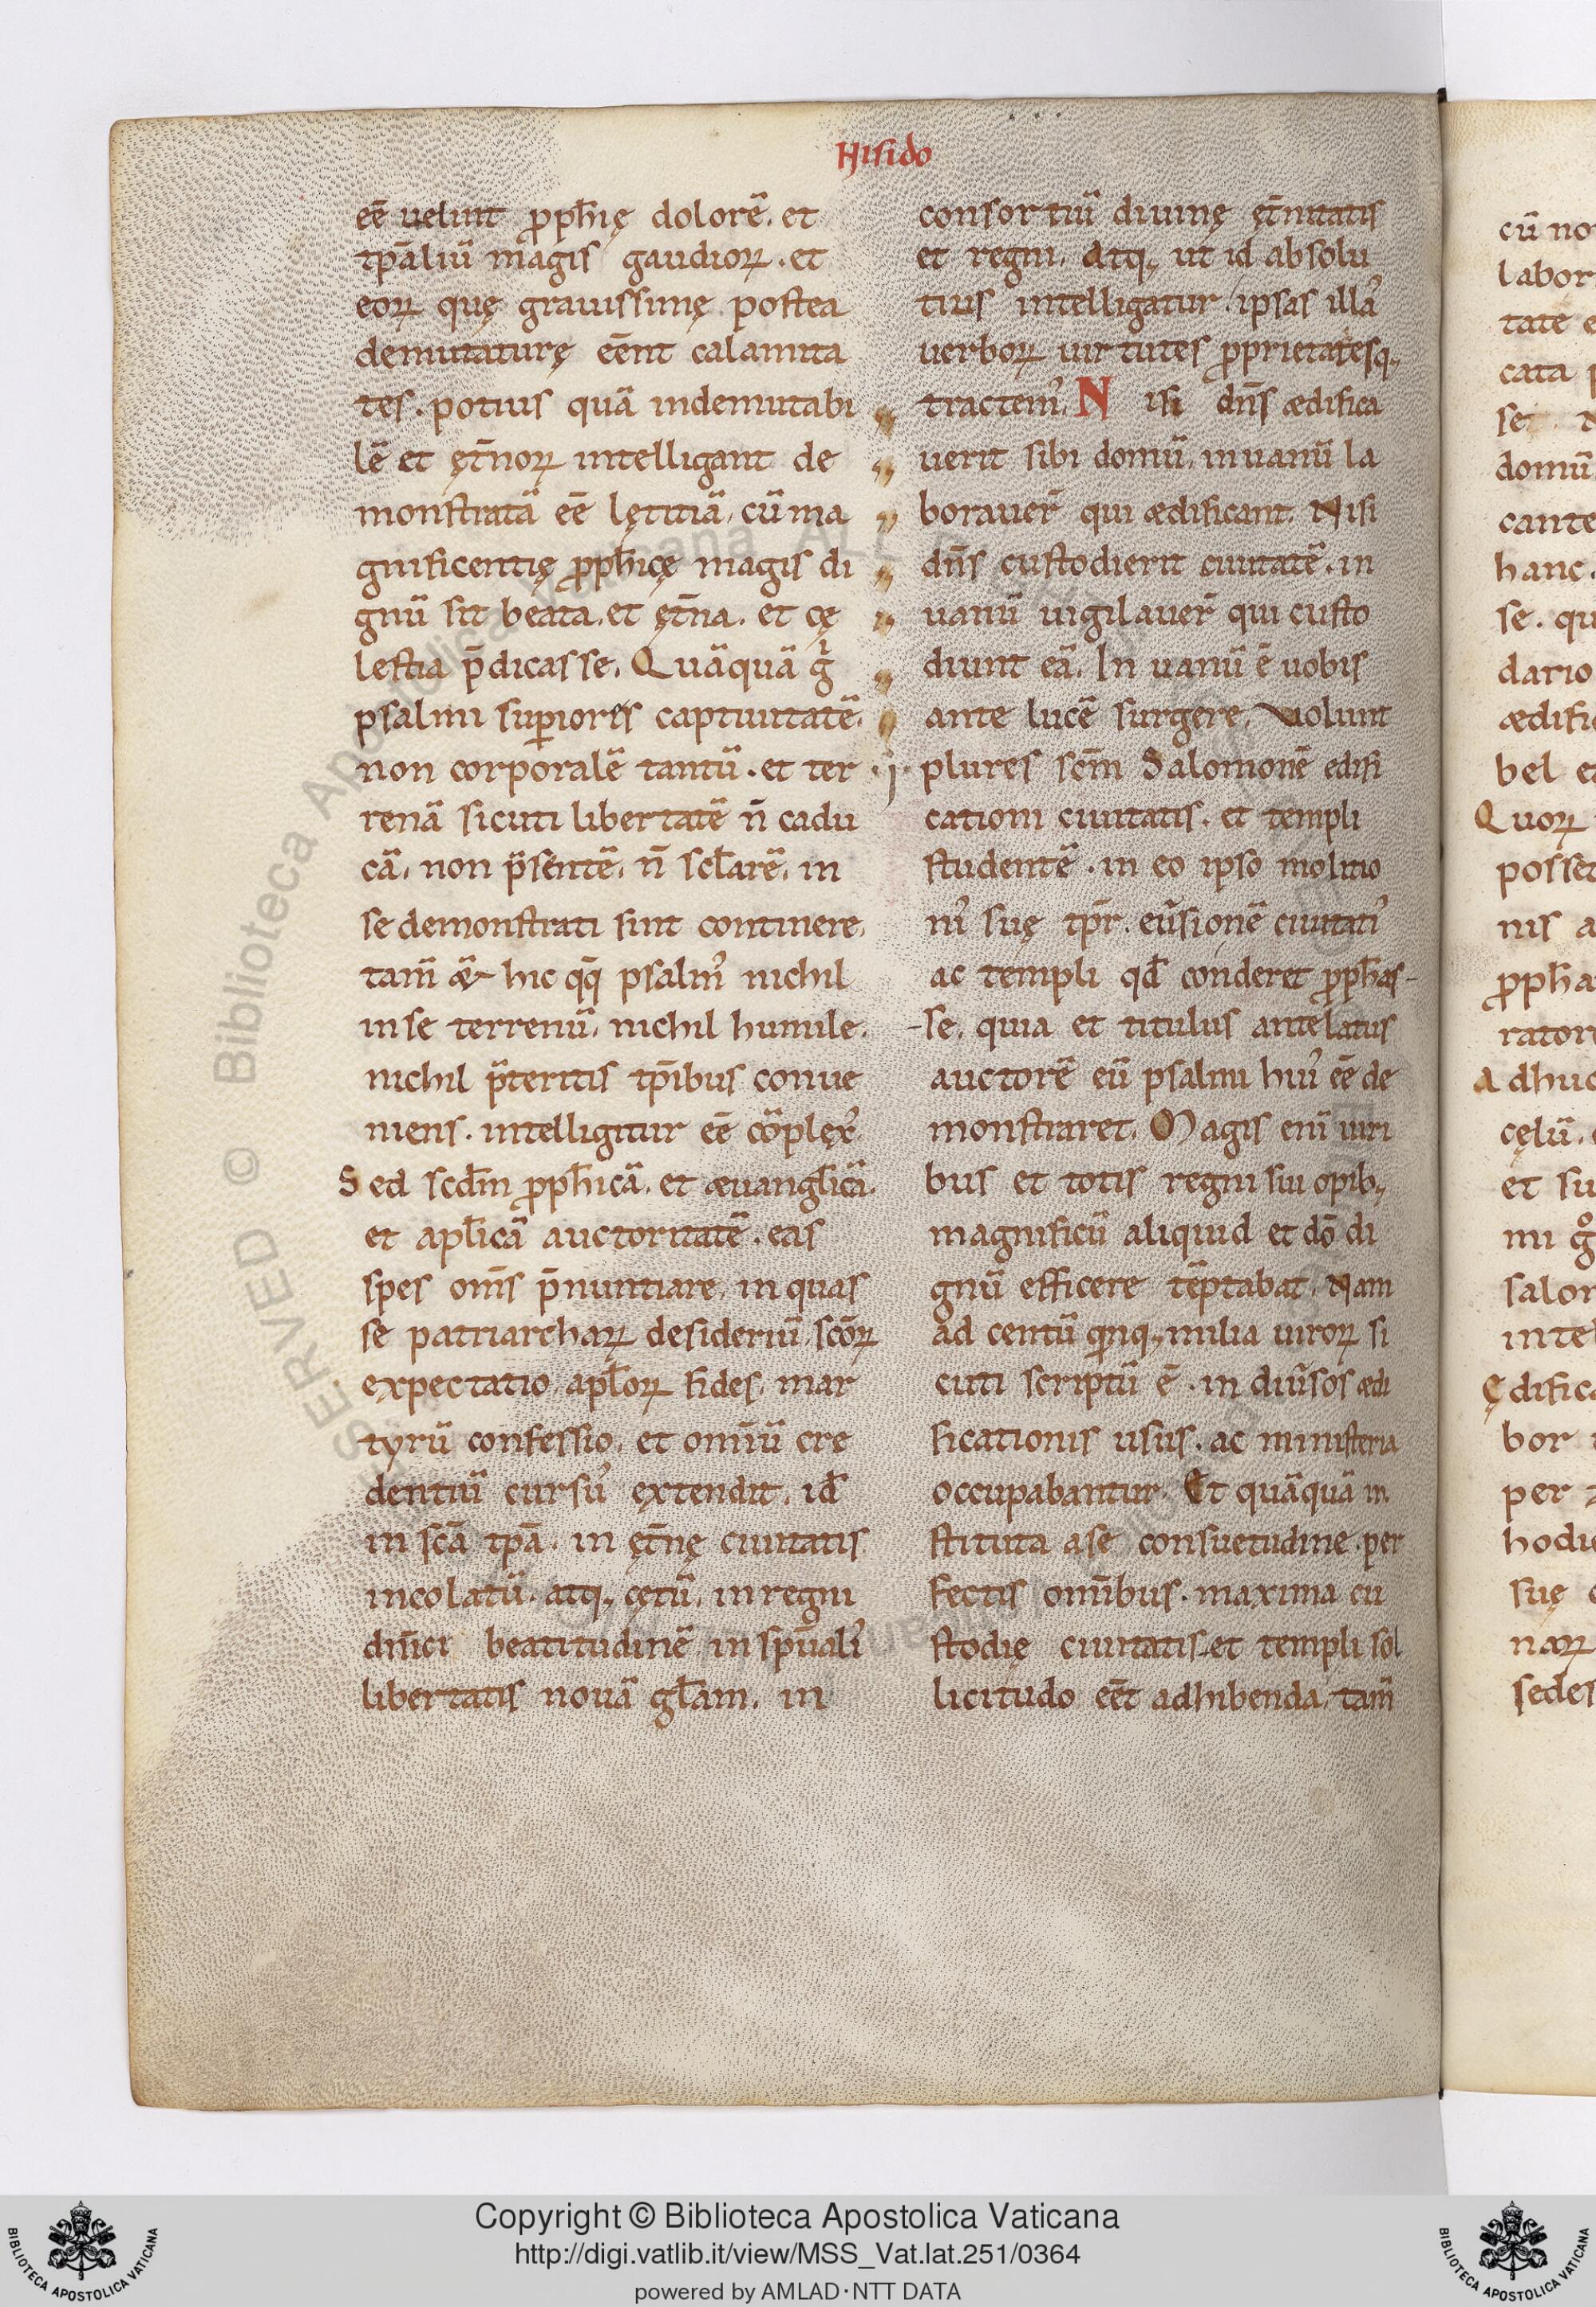 Hisido
eē uelint ꝓph̄ię dolorē. et
tp̄aliū magis gaudioꝝ. et
eoꝝ quę grauissimę postea
demutaturę eēnt calamita
tes. potius quā indemutabi
lē et ęt̄noꝝ intelligant de
monstratā eē lętitiā, cū ma
gnificentię ꝓph̄icę magis di
gnū sit beata. et ęt̄na. et cę
lestia p̄dicasse. Quāquā gͥ
psalmi suꝑiores captiuitatē.
non corporalē tantū. et ter
renā sicuti libertatē n̄ cadu
cā, non p̄sentē, n̄ scl̄arē, in
se demonstrati sint continere,
tam̄ & hic qq̄ psalm᾽ nichil
in se terrenū, nichil humile,
nichil p̄teritis tp̄ibus conue
niens. intelligitur eē cōplęx᾽
Sed scd̄m ꝓph̄icā. et æuangl̄icā.
et apl̄icā auctoritatē. eas
spes om̄s p̄nuntiare, in quas
se patriarchaꝝ desideriū, sc̄oꝝ
expectatio, apl̄oꝝ fides, mar
tyrū confessio, et omīū cre
dentiū cursu᾽ extendit. id̄
in sc̄ā tp̄a. in ęt̄nę ciuitatis
incolatū. atq; cętū, in regni
dn̄ici beatitudinē in sp̄uali᾽
libertatis nouā gl̄am. in
consortiū diuinę ęt̄nitatis
et regni. Atq; ut id absolu
tius intelligatur, ipsas illa᾽
uerboꝝ uirtutes ꝓprietatesq;
tractem᾽. Nisi dn̄s ædifica
uerit sibi domū, in uanū la
borauer̄ qui ædificant. Nisi
dn̄s custodierit ciuitatē. in
uanū uigilauer̄ qui custo
diunt eā. In uanū ē uobis
ante lucē surgere. Uolunt
plures scm̄ Salomonē edifi
cationi ciuitatis. et templi
studentē. in eo ipso molitio
ni᾽ suę tp̄r. eūsionē ciuitati᾽
ac templi qd̄ conderet ꝓph̄as-
-se. quia et titulus antelatus
auctorē eū psalmi hui᾽ eē de
monstraret. Magis enī uiri
bus et totis regni sui opib;
magnificū aliquid et dō di
gnū efficere tēptabat. Nam
ad centū qͥnq; milia uiroꝝ si
cuti scriptū ē. in diūsos ædi
ficationis usus. ac ministeria
occupabantur. Et quāquā in
stituta a se consuetudine. per
fectis omībus. maxima cu
stodię ciuitatis. et templi sol
licitudo eēt adhibenda, tam̄
cū no
labor
tate e
cata
se
domū
cante
hanc.
se. qu
dario
ædifi
bel e
Quoꝝ
posset
nis a
ꝓph̄a
rator
Adhuc
cęlū.
et su
mi gͦ
salor
intel
Ędifica
bor
per
hodie
suę
naꝝ
sedes
Copyright © Biblioteca Apostolica Vaticana
http://digi.vatlib.it/view/MSS_Vat.lat.251/0364
powered by AMLAD·NTT DATA
BIBLIOTECA APOSTOLICA VATICANA
BIBLIOTECA APOSTOLICA VATICANA